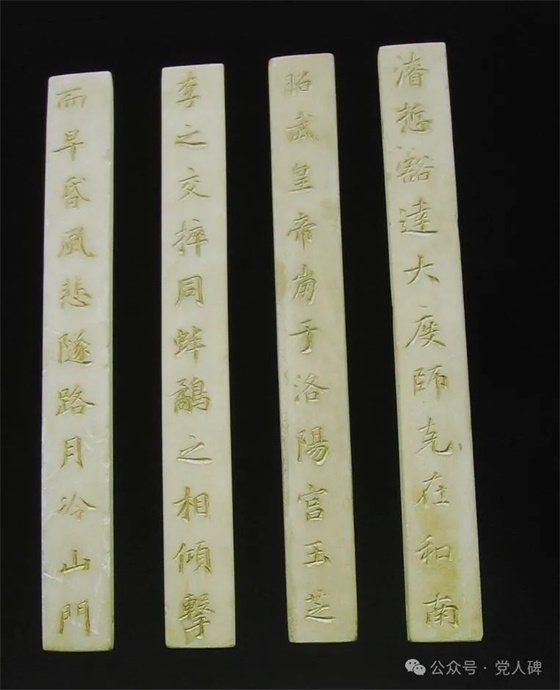 濬悊豁達大度師克在和南
昭武皇帝崩于洛陽宮玉芝
李之交捽同蚌鷸之相傾擊
而早昏風悲隧路月冷山門
公众号·党人碑